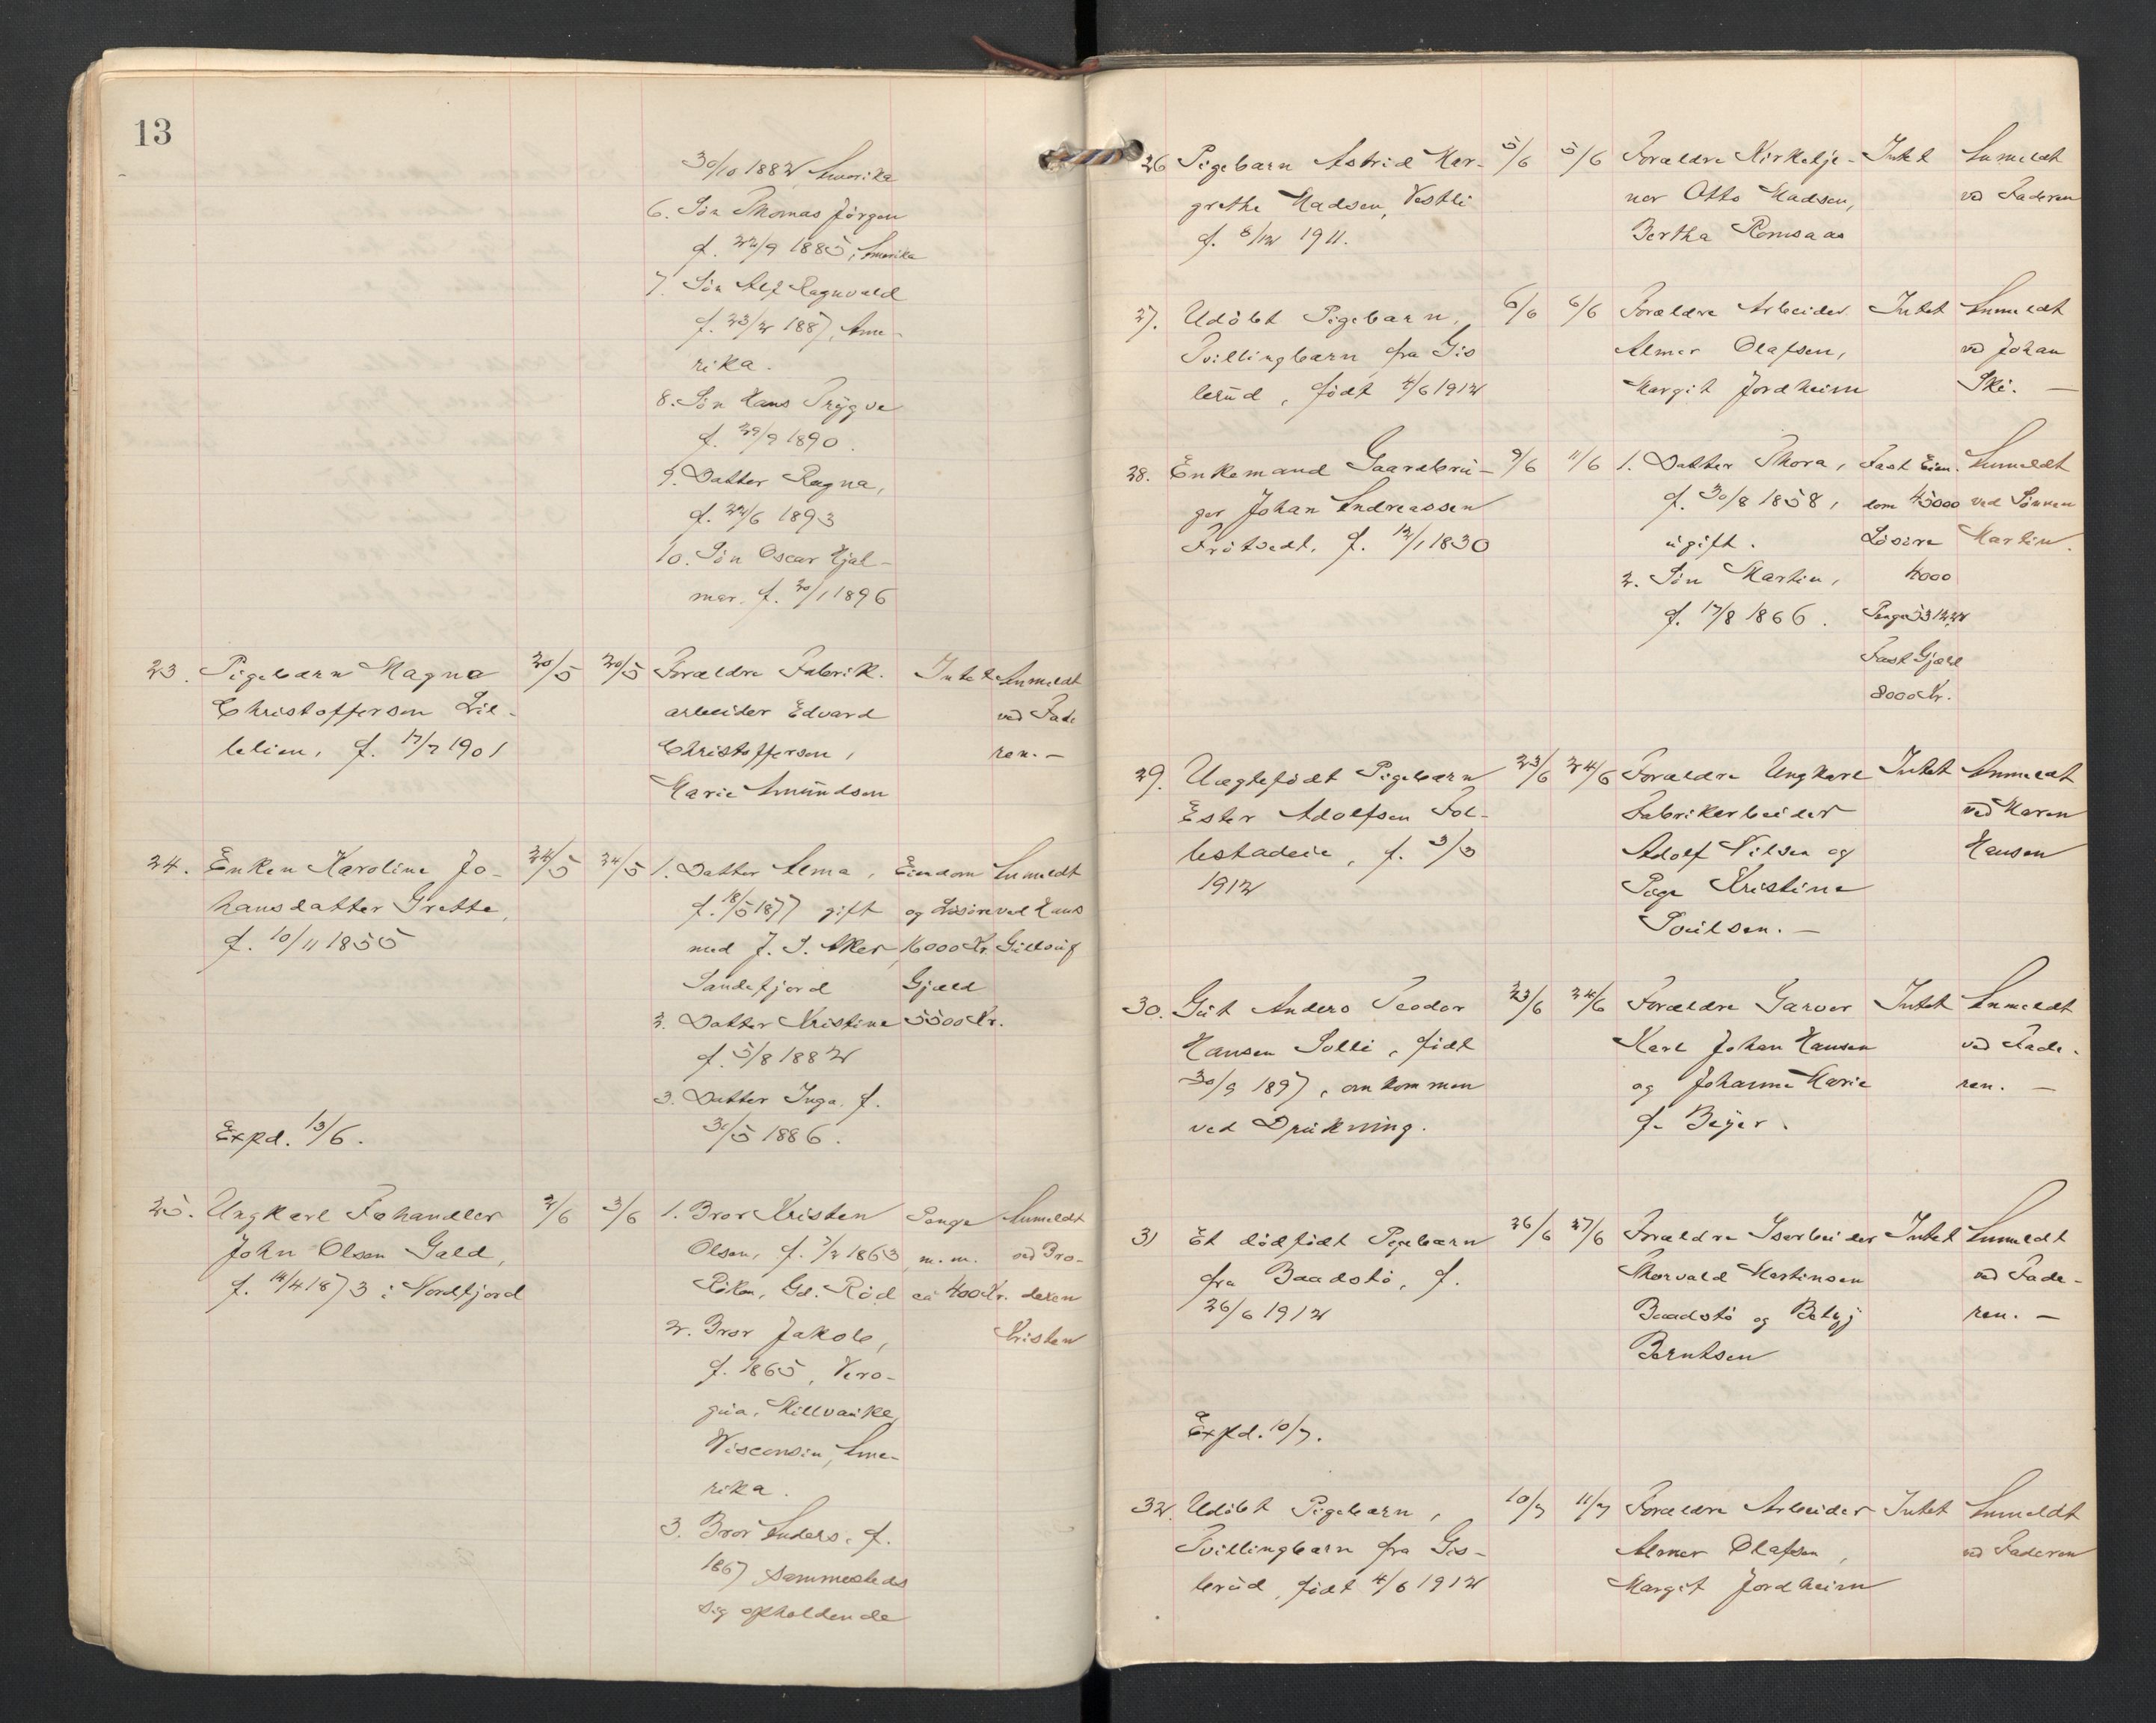 13
30/10 1882, Amerika
6. Søn Thomas Jörgen
f. 22/9 1885, Amerika
7. Søn Alf Ragnvald
f. 23/2 1887, Ame-
rika.
8. Søn Hans Trygve
f. 29/9 1890.
9. Datter Ragna,
f. 22/6 1893
10. Søn Oscar Hjal-
mar, f. 20/1 1896
23. Pigebarn Magna 20/5 20/5 Forældre Fabrik. Intet Anmeldt
Christoffersen Lil- arbeider Edvard ved Fade
lelien, f. 17/7 1901 Christoffersen, ren. —
Marie Amundsen
24. Enken Karoline Jo- 24/5 24/5 1. Datter Alma, Eiendom Anmeldt
hansdatter Grette, f. 18/5 1877 gift og Løsöre ved Hans
f. 10/11 1855 med J. S. Aker, 16000 Kr. Gullaug
Sandefjord Gjæld
2. Datter Kristine 5500 Kr.
f. 5/8 1882
3. Datter Inga, f.
Exped. 13/6. 31/5 1886.
25. Ungkarl Fæhandler 2/6 3/6 1. Bror Kristen Penge Anmeldt
John Olsen Gald, Olsen, f. 7/2 1863, m. m. ved Bro-
f. 14/4 1873 i Nordfjord Röken, Gd. Röd ca 400 Kr. deren
2. Bror Jakob, Kristen
f. 1865, Vero-
qua, Millvauke,
Visconsin, Ame-
rika.
3. Bror Anders, f.
1867 sammesteds
sig opholdende
26 Pigebarn Astrid Mar- 5/6 5/6 Forældre Kirketje- Intet Anmeldt
grethe Madsen, Vestli ner Otto Madsen, ved Faderen
f. 8/12 1911. Bertha Romsaas
27. Udöbt Pigebarn, 6/6 6/6 Forældre Arbeider Intet Anmeldt
Tvillingbarn fra Gis Almer Olafsen, ved Johan
lerud, födt 4/6 1912 Margit Jordheim Ski. —
28. Enkemand Gaardbru- 9/6 11/6 1. Datter Thora, Fast Eien- Anmeldt
ger Johan Andreassen f. 30/8 1858, dom 45000 ved Sönnen
Frötvedt, f. 12/1 1830 ugift. Lösöre Martin.
2. Søn Martin, 4000
f. 17/8 1866. Penge
Fast Gjæld
8000 Kr.
29. Uægtefödt Pigebarn 23/6 24/6 Forældre Ungkarl Intet Anmeldt
Ester Adolfsen Fol- Fabrikarbeider ved Maren
lestadeie, f. 3/3 Adolf Nilsen og Hansen
1912 Pige Kristine
Paulsen. —
30. Gut Anders Teodor 23/6 24/6 Forældre Garver Intet Anmeldt
Hansen Solli, födt Karl Johan Hansen ved Fade-
30/9 1897, omkommen og Johanne Marie ren. —
ved Drukning. f. Beyer.
31 Et dödfödt Pigebarn 26/6 27/6 Forældre Isarbeider Intet Anmeldt
fra Baadstö, f. Thorvald Martinsen ved Fade-
26/6 1912 Baadstö og Betzy ren. —
Berntsen
Exped. 10/7.
32. Udöbt Pigebarn, 10/7 11/7 Forældre Arbeider Intet Anmeldt
Tvillingbarn fra Gis- Almer Olafsen, ved Faderen
lerud, födt 4/6 1912 Margit Jordheim